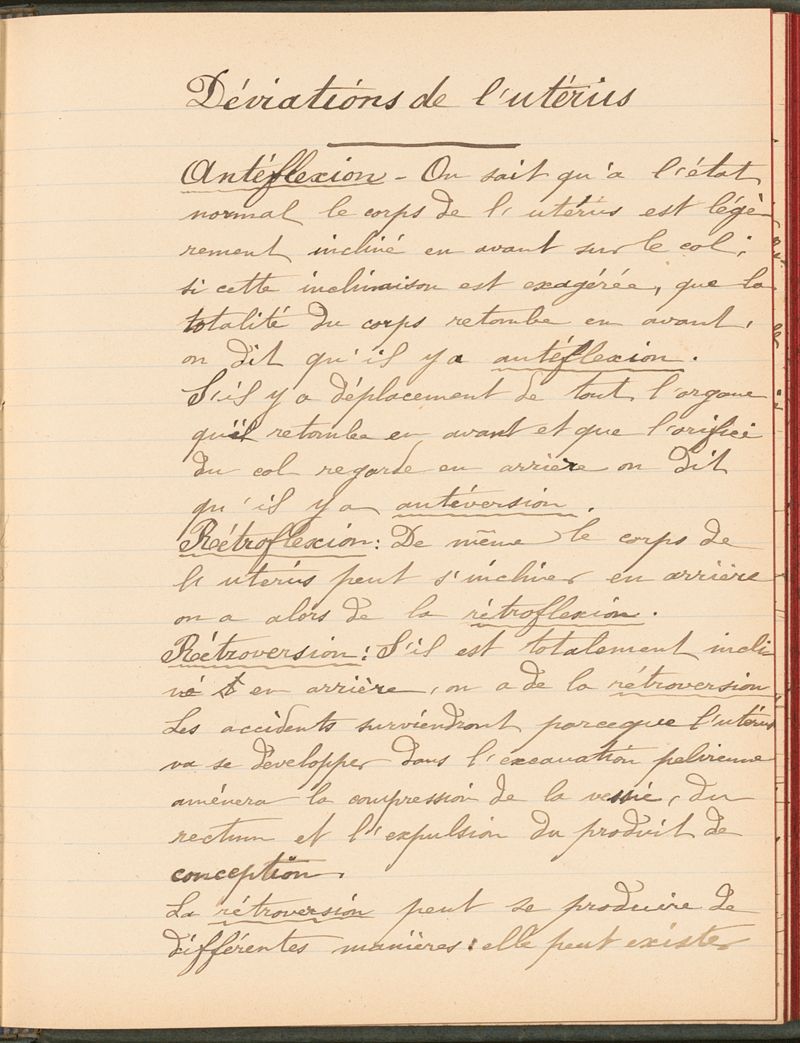 Déviations de l'utérus
Antéflexion - On sait qu'a l'état
normal le corps de l'utérus est légè
rement incliné en avant sur le col;
si cette inclinaison est exagérée, que la
totalité du corps retombe en avant,
on dit qu'il y a antéflexion.
S'il y a déplacement de tout l'organe
qu'il retombe en avant et que l'orifice
du col regarde en arrière on dit
qu'il y a antéversion.
Rétroflexion: De même le corps de
l'utérus peut s'incliner en arrière
on a alors de la rétroflexion.
Rétroversion: S'il est totalement incli
né en arrière, on a de la rétroversion,
Les accidents surviendront parceque l'utérus
va se développer dans l'excavation pelvienne
amènera la compression de la vessie, du
rectum et l'expulsion du produit de
conception.
La rétroversion peut se produire de
différentes manières: elle peut exister